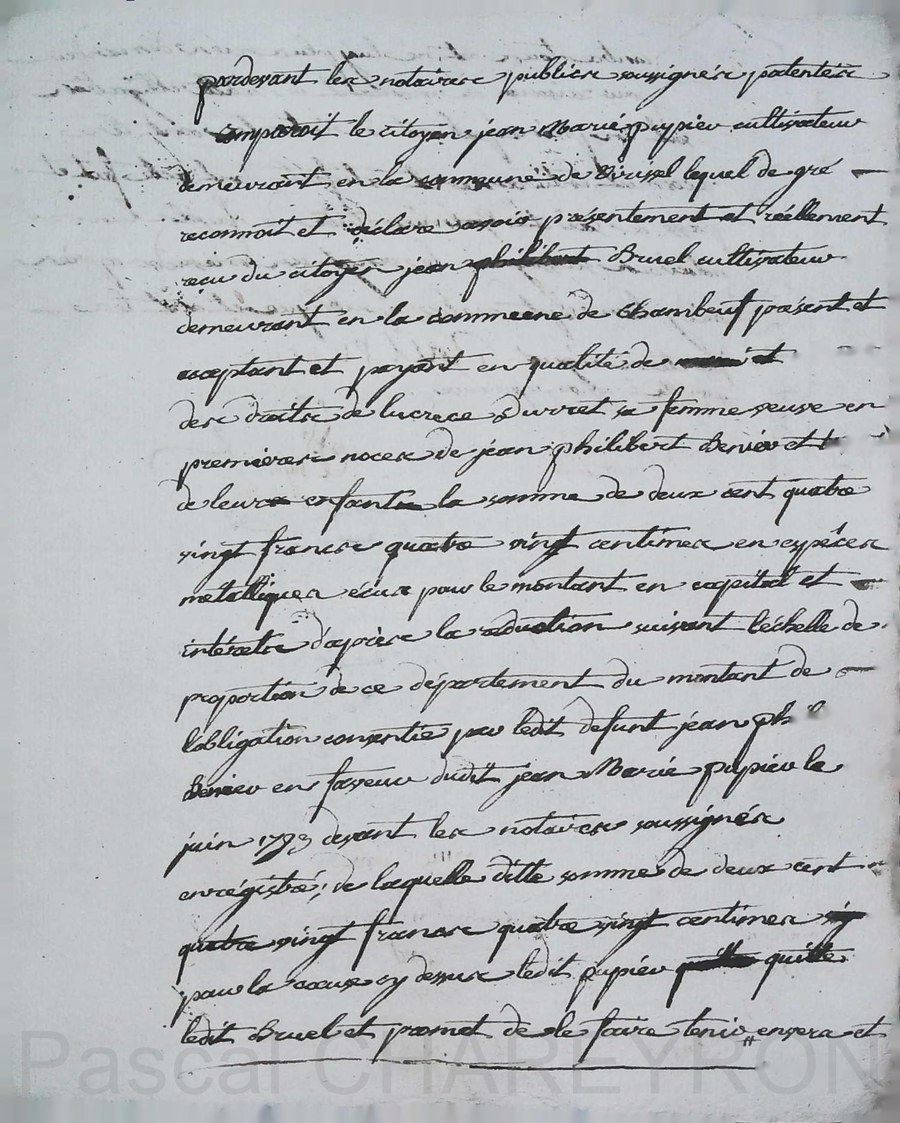 pardevant les notaires publics soussignés patentés
comparoit le citoyen jean Marie pupier cultivateur
demeurant en la commune de Virisel lequel de gré
reconnoit et déclare avoir présentement et réellement
reçu du citoyen jean philibert Bruel cultivateur
demeurant en la commune de Chambeuf présent et
acceptant et payant en qualité de
des droits de lucrece Durret sa femme veuve en
premieres noces de jean philibert Benier et
de leurs enfants la somme de deux cent quatre
vingt francs quatre vingt centimes en espéces
métalliques écus pour le montant en capital et
intérets d'après la réduction suivant l'échelle de
proportion de ce département du montant de
l'obligation consentie par ledit defunt jean ph
Benier en faveur dudit jean Marie pupier le
juin 1793 devant les notaires soussignés
enregistré, de laquelle ditte somme de deux cent
quatre vingt francs quatre vingt centimes
pour la cause cy dessus ledit pupier quitte
ledit Bruel et promet de le faire tenir envers et
Pascal CHAREYRON